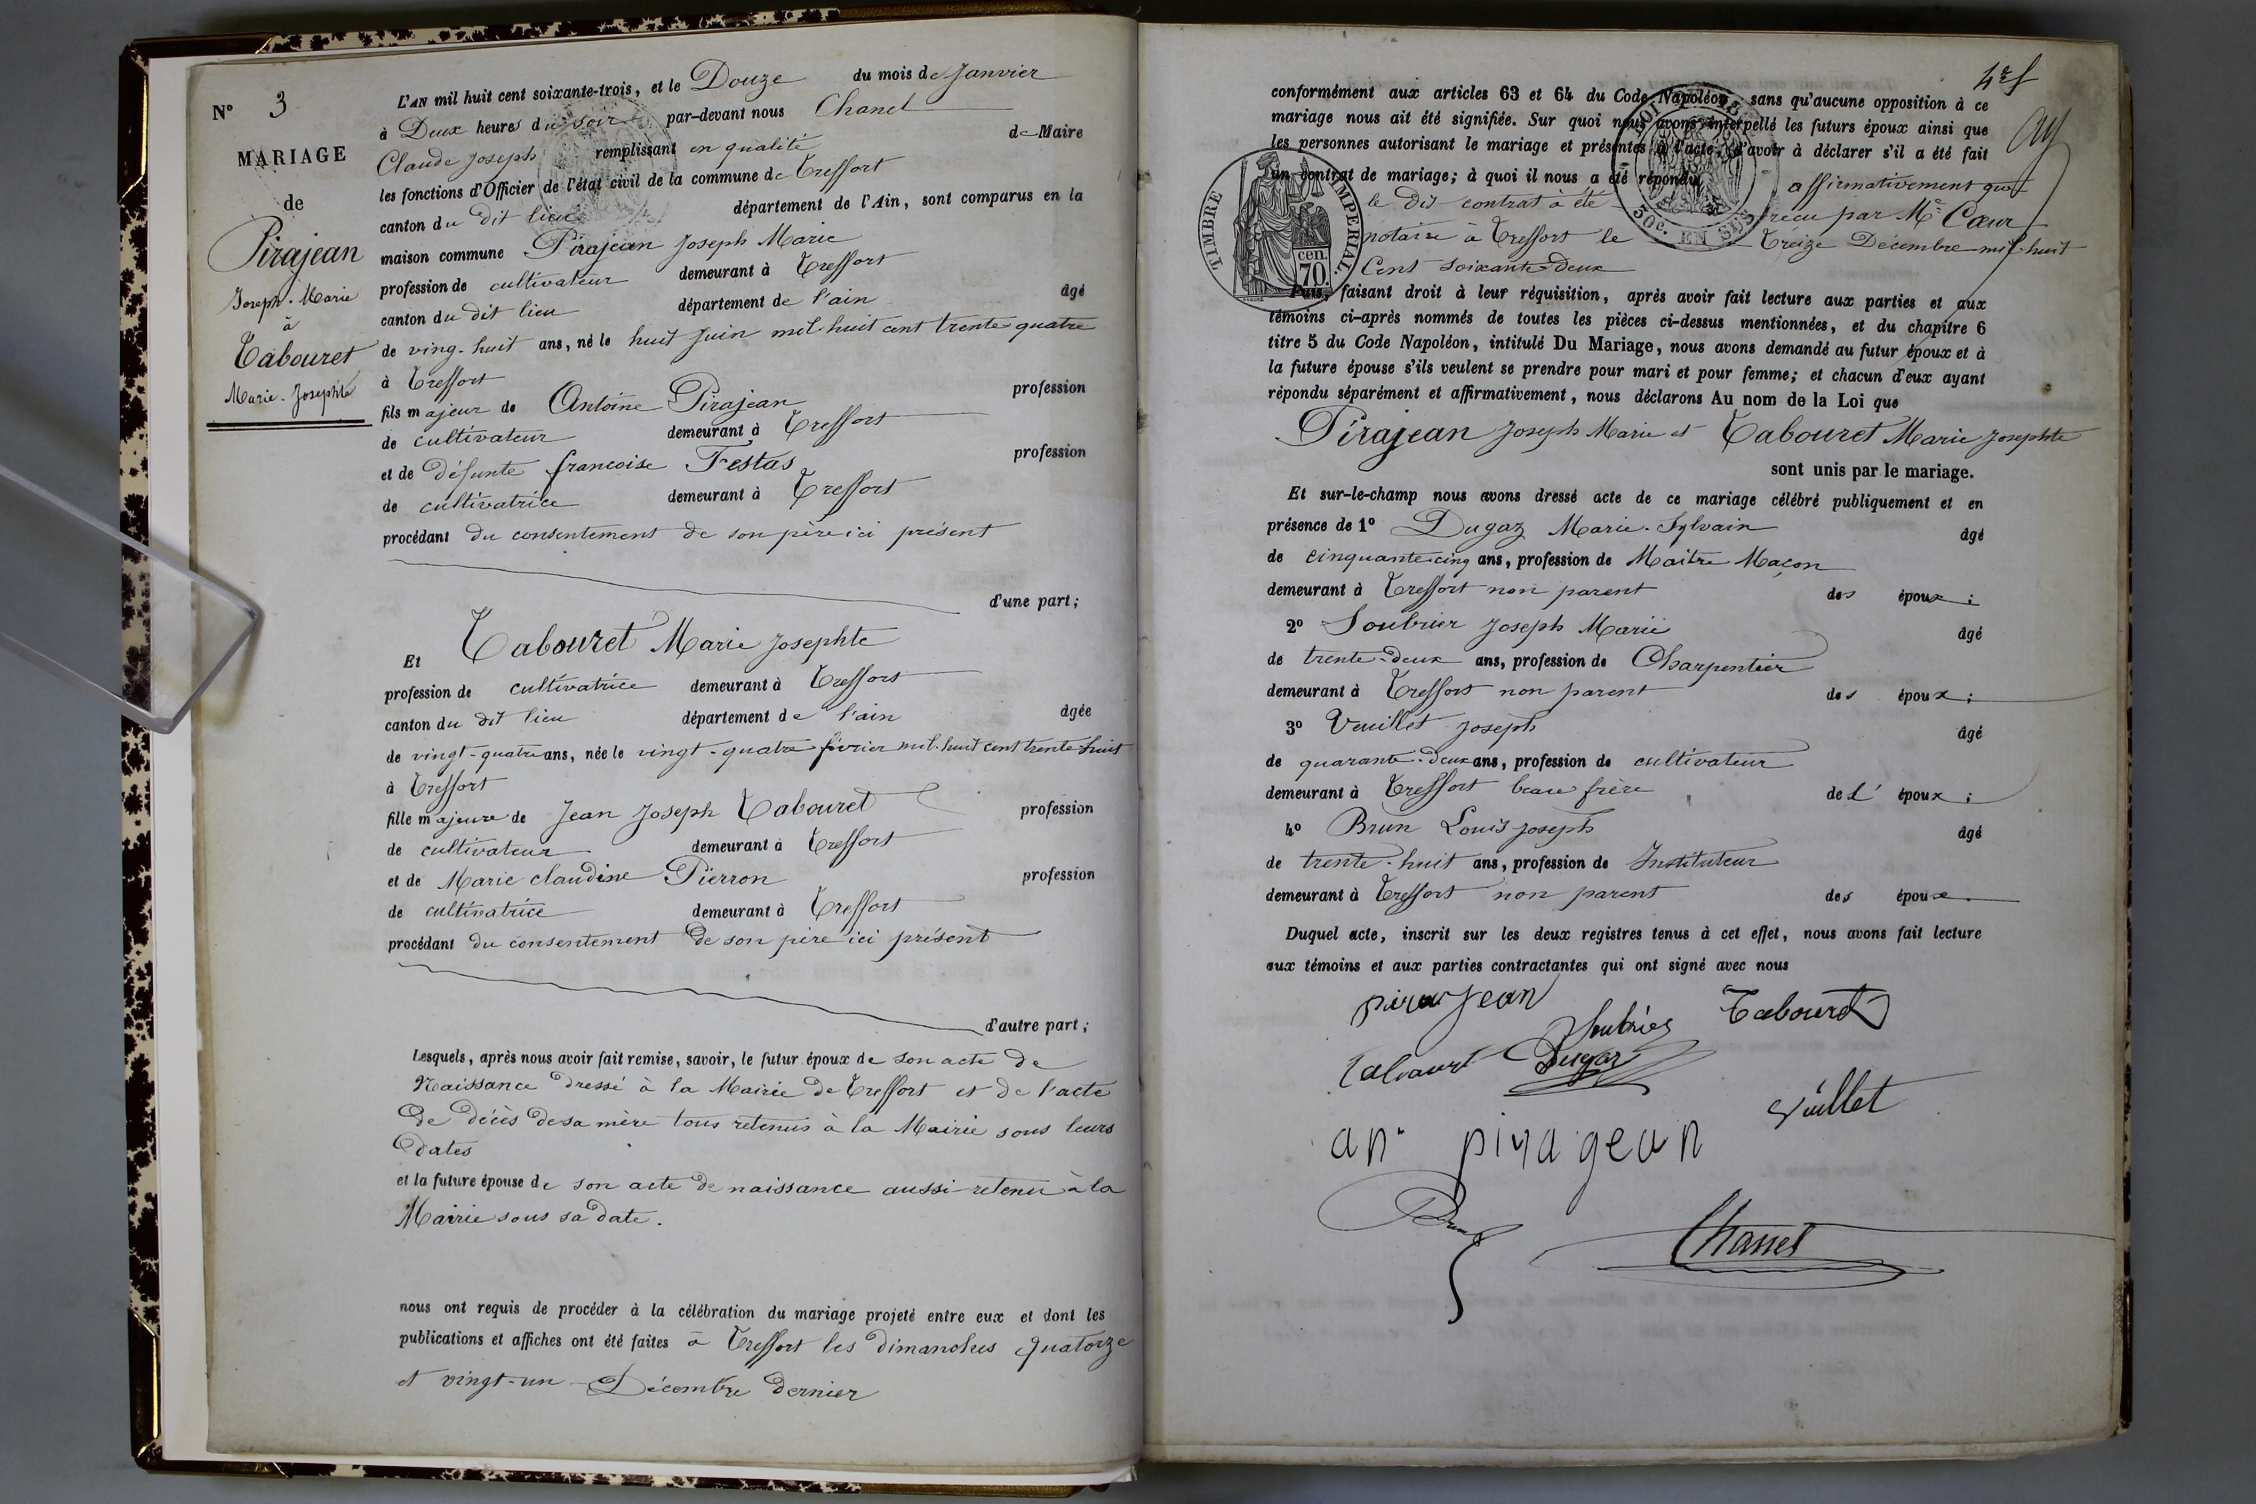 N° 3
MARIAGE
de
Pirajean
Joseph-Marie
à
Tabouret
Marie-Josephte
L'AN mil huit cent soixante-trois, et le Douze du mois de Janvier
à Deux heures du soir par-devant nous Chanel
Claude Joseph remplissant en qualité de Maire
les fonctions d'Officier de l'état civil de la commune de Treffort
canton du dit lieu département de l'Ain, sont comparus en la
maison commune Pirajean Joseph Marie
profession de cultivateur demeurant à Treffort
canton du dit lieu département de l'ain âgé
de ving-huit ans, né le huit Juin mil-huit cent trente quatre
à Treffort
fils majeur de Antoine Pirajean profession
de cultivateur demeurant à Treffort
et de défunte francoise Festas profession
de cultivatrice demeurant à Treffort
procédant du consentement de son père ici présent
d'une part;
Et Tabouret Marie Josephte
profession de cultivatrice demeurant à Treffort
canton du dit lieu département de l'ain âgée
de vingt-quatre ans, née le vingt-quatre février mil-huit cent trente-huit
à Treffort
fille majeure de Jean Joseph Tabouret profession
de cultivateur demeurant à Treffort
et de Marie claudine Pierron profession
de cultivatrice demeurant à Treffort
procédant du consentement de son père ici présent
d'autre part;
Lesquels, après nous avoir fait remise, savoir, le futur époux de son acte de
Naissance dressé à la Mairie de Treffort et de l'acte
de décès de sa mère tous retenus à la Mairie sous leurs
dates
et la future épouse de son acte de naissance aussi retenu à la
Mairie sous sa date.
nous ont requis de procéder à la célébration du mariage projeté entre eux et dont les
publications et affiches ont été faites à Treffort les dimanches quatorze
et vingt-un Décembre dernier
conformément aux articles 63 et 64 du Code Napoléon, sans qu'aucune opposition à ce
mariage nous ait été signifiée. Sur quoi nous avons interpellé les futurs époux ainsi que
les personnes autorisant le mariage et présentes à l'acte, d'avoir à déclarer s'il a été fait
un contrat de mariage; à quoi il nous a été répondu affirmativement que
le dit contrat à été reçu par Me Cœur
notaire à Treffort le Treize Décembre mil-huit
Cent soixante-deux
TIMBRE IMPERIAL.
cen.
70.
50c. EN SUS
Puis, faisant droit à leur réquisition, après avoir fait lecture aux parties et aux
témoins ci-après nommés de toutes les pièces ci-dessus mentionnées, et du chapitre 6
titre 5 du Code Napoléon, intitulé Du Mariage, nous avons demandé au futur époux et à
la future épouse s'ils veulent se prendre pour mari et pour femme; et chacun d'eux ayant
répondu séparément et affirmativement, nous déclarons Au nom de la Loi que
Pirajean Joseph Marie et Tabouret Marie Josephte
sont unis par le mariage.
Et sur-le-champ nous avons dressé acte de ce mariage célébré publiquement et en
présence de 1° Dugaz Marie-Sylvain âgé
de cinquante-cinq ans, profession de Maitre Maçon
demeurant à Treffort non parent des époux;
2° Soubrier Joseph Marie âgé
de trente-deux ans, profession de Charpentier
demeurant à Treffort non parent des époux;
3° Veuillet Joseph âgé
de quarante-deux ans, profession de cultivateur
demeurant à Treffort beau frère de l' époux;
4° Brun Louis Joseph âgé
de trente-huit ans, profession de Instituteur
demeurant à Treffort non parent des époux.
Duquel acte, inscrit sur les deux registres tenus à cet effet, nous avons fait lecture
aux témoins et aux parties contractantes qui ont signé avec nous
pirajean
Soubrier Tabouret
Dugaz
Vuillet
an piragean
Brun
Chanel